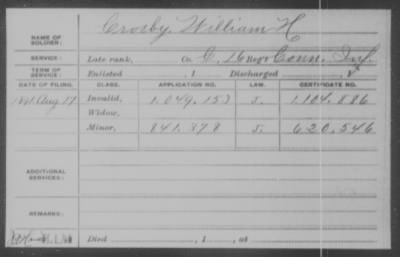 NAME OF SOLDIER: Crosby, William H
SERVICE: Late rank, Co. C, 16 Reg't Conn. Inf.
TERM OF SERVICE: Enlisted , 1 Discharged , 1
DATE OF FILING. CLASS. APPLICATION NO. LAW. CERTIFICATE NO.
1891 Aug 17 Invalid, 1.049.153 J. 1.104.886
Widow,
Minor, 841.378 J. 620.546
ADDITIONAL SERVICES:
REMARKS:
Died , 1 , at